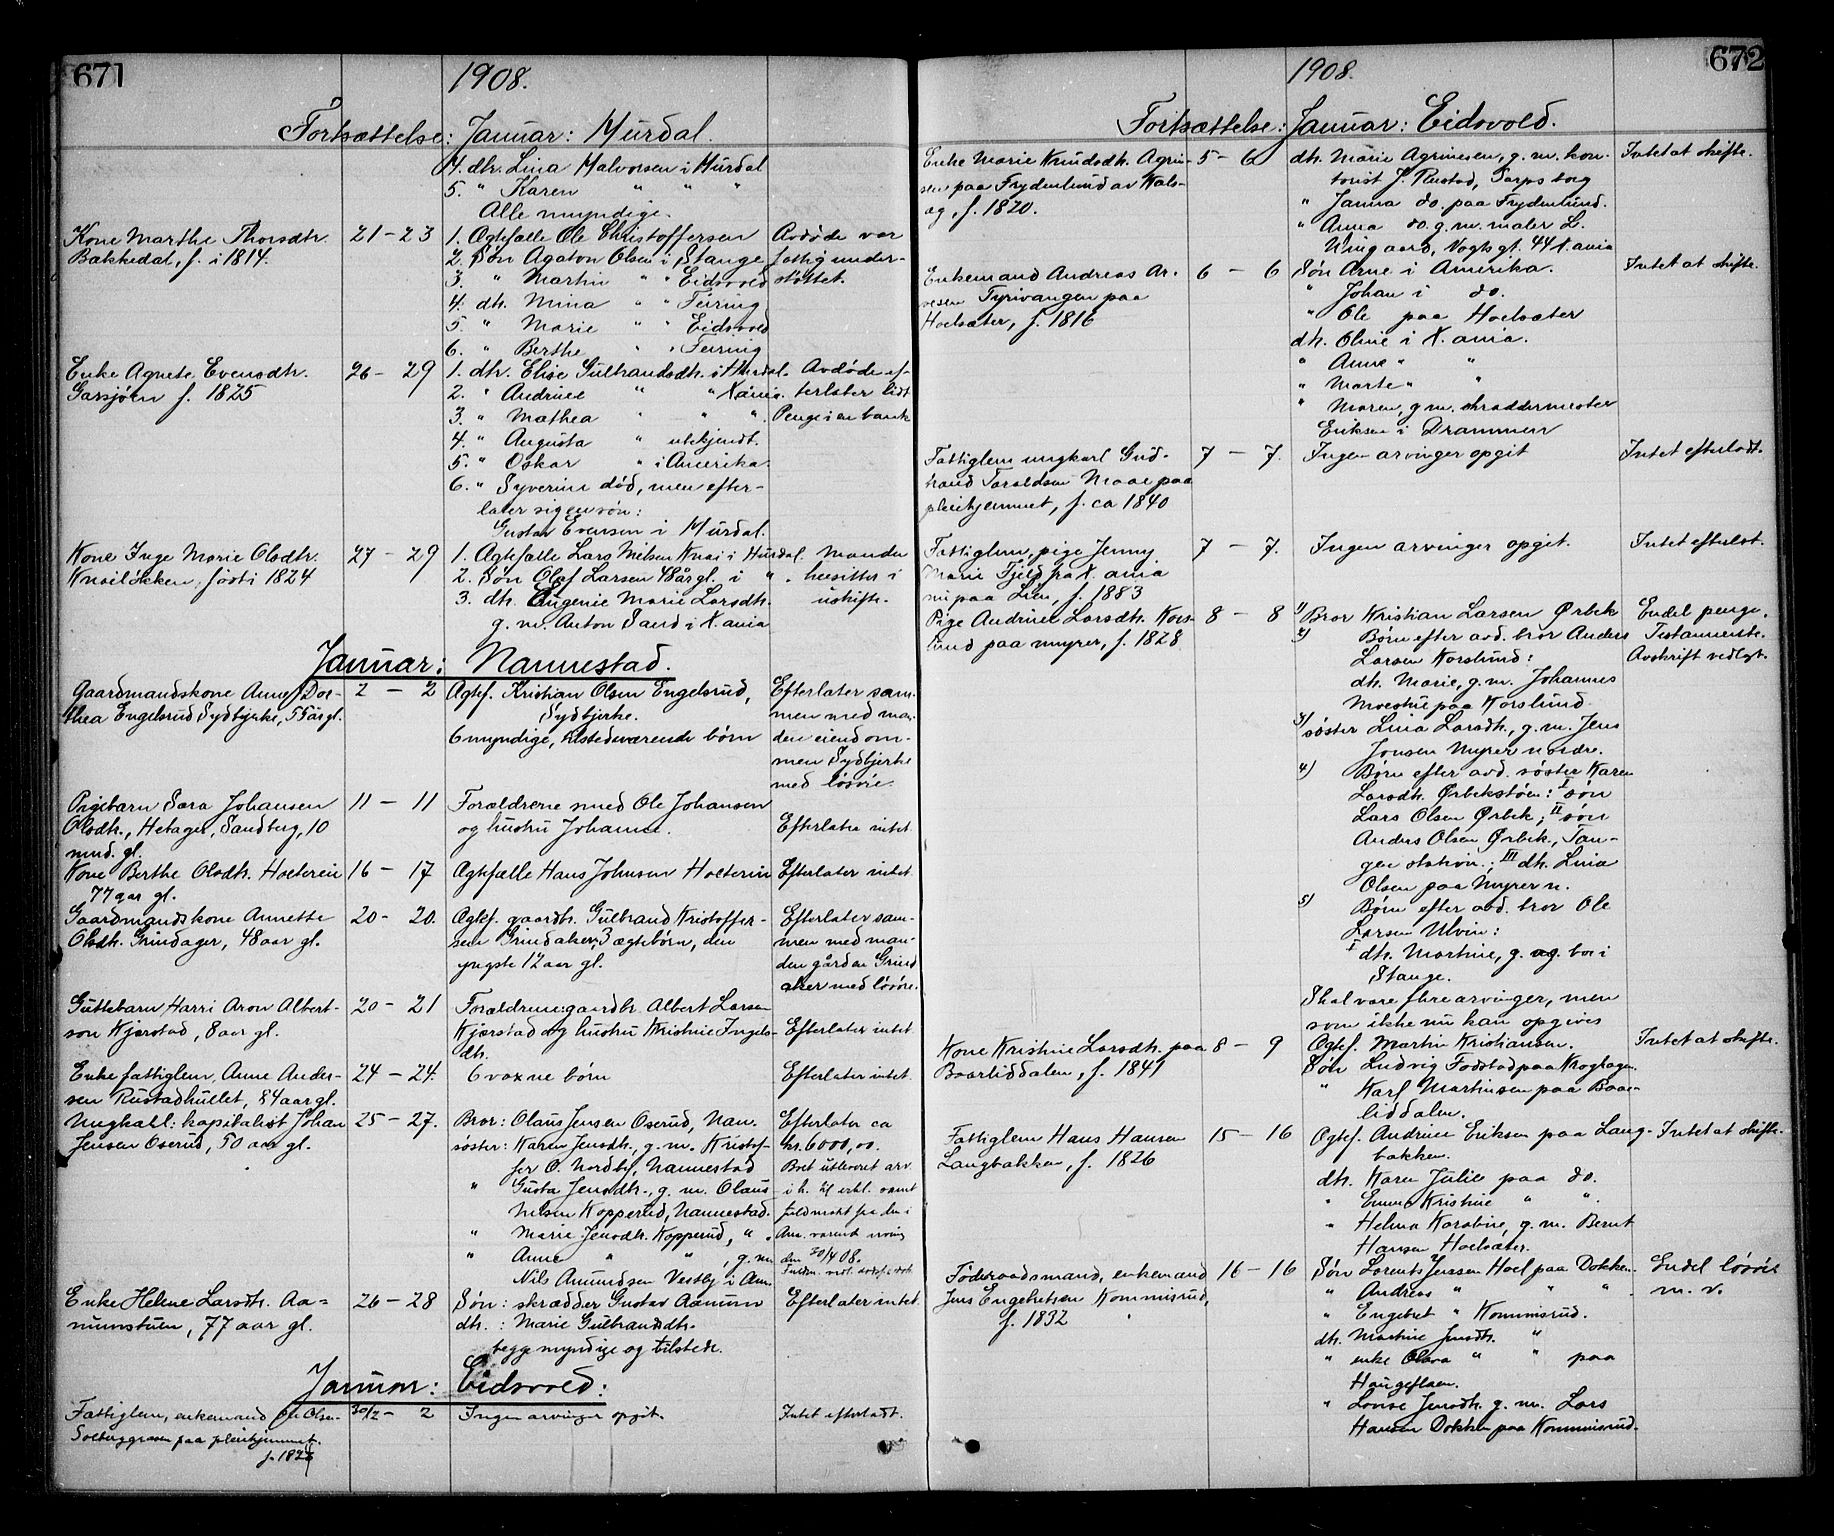 671
1908.
Fortsættelse: Januar: Hurdal.
4. dtr. Lina Halvorsen i Hurdal
5. " Karen " " "
Alle myndige.
Kone Marthe Thorsdtr. 21 - 23 1. Ægtefælle Ole Christoffersen Avdøde var
Bakkedal, f. i 1814. 2. Søn Agaton Olsen i Stange fattigunder-
3. " Martin " " Eidsvold støttet.
4. dtr. Mina " " Feiring
5. " Marie " " Eidsvold
6. " Berthe " " Feiring
Enke Agnete Evensdtr. 26 - 29 1. dtr. Elise Gulbrandsdtr. i Hurdal. Avdøde ef-
Garsjøen f. 1825 2. " Andrine " " Xania. terlater lidt
3. " Mathea " " " Penge i en bank
4. " Augusta " utekjendt.
5. " Oskar " i Amerika.
6. " Syverine død, men efter-
later sig en søn:
Gustav Evensen i Hurdal.
Kone Inge Marie Olsdtr. 27 - 29 1. Ægtefælle Lars Nilsen Knai i Hurdal. Manden
Knailøkken, født i 1824 2. Søn Olaf Larsen 48 år gl. i " hensitter i
3. dtr. Eugenie Marie Larsdtr. uskifte.
g. m. Anton Sand i X.ania
Januar: Nannestad.
Gaardmandskone Anne Dor- 2 - 2 Ægtef. Kristian Olsen Engelsrud, Efterlater sam-
thea Engelsrud Sydbjerke, 55 år gl. Sydbjerke. men med man-
6 myndige, tilstedeværende børn den eiendom-
men Sydbjerke
med løsøre.
Pigebarn Sara Johansen 11 - 11 Forældrene smed Ole Johansen
Olsdtr., Hetager, Sandberg, 10 og hustru Johanne. Efterlater intet
mnd. gl.
Kone Berthe Olsdtr. Holtereie 16 - 17 Ægtefælle Hans Johnsen Holtereie Efterlater intet
77 aar gl.
Gaardmandskone Annette 20 - 20. Ægtef. gaardbr. Gulbrand Kristoffer- Efterlater sam-
Olsdtr. Grindager, 48 aar gl. sen Grindaker, 3 ægtebørn, den men med man-
yngste 12 aar gl. den gården Grind
aker med løsøre.
Guttebarn Harri Aron Albert- 20 - 21 Forældrene: gaardbr. Albert Larsen
son Kjærstad, 8 aar gl. Kjærstad og hustru Kristine Ingels- Efterlater intet.
dtr.
Enke fattiglem, Anne Ander- 24 - 24. 6 voxne børn Efterlater intet.
sen Rustadhullet, 84 aar gl.
Ungkall: kapitalist Johan 25 - 27. Bror: Olaus Jensen Oserud, Nan. Efterlater ca
Jensen Oserud, 50 aar gl. søster: Karen Jensdtr., g. m. Kristof- kr. 6000,00.
fer O. Nordby, Nannestad Boet utleveret arv.
" Gusta Jensdtr., g. m. Olaus i h. til erkl. samt
Nilsen Kopperud, Nannestad. fuldmakt fra den i
" Marie Jensdtr. Kopperud, " .
" Anne " " , g. m. den 30/4 08.
Nils Amundsen Vestby i Am.
Enke Helene Larsdtr. Aa- 26 - 28 Søn: skrædder Gustav Aanum Efterlater intet.
numstuen, 77 aar gl. dtr.: Marie Gulbrandsdtr.
begge myndige og tilstede.
Januar: Eidsvold:
Fattiglem, enkemand Per Olsen 30/12 - 2 Ingen arvinger opgit. Intet efterladt.
Solberggraven paa pleiehjemmet.
672
1908.
Fortsættelse: Januar: Eidsvold.
Enke Marie Knudsdtr. Agrim- 5 - 6 dtr. Marie Agrimsen, g. m. kon- Intet at skifte.
sen paa Frydenlund av Hals- torist J. Rustad, Sarpsborg
ag, f. 1820. " Janna do. paa Frydenlund.
" Anna do. g. m. maler L.
Wingaard, Vogts gt. 44 X.ania
Enkemand Andreas Ar- 6 - 6 Søn Arne i Amerika. Intet at skifte.
nesen Tyrivangen paa " Johan i do.
Hoelsæter, f. 1816 " Ole paa Hoelsæter
dtr. Oline i X.ania.
" Anne " "
" Marte " "
" Maren, g. m. skræddermester
Eriksen i Drammen
Fattiglem ungkarl Gud- 7 - 7. Ingen arvinger opgit Intet efterladt.
brand Taraldsen Moae paa
pleiehjemmet, f. ca 1840
Fattiglem, pige Jenny 7 - 7. Ingen arvinger opgit. Intet efterlat.
Marie Fjeld fra X.ania
nu paa Lien, f. 1883
Pige Andrine Larsdtr. Kors- 8 - 8 1) Bror Kristian Larsen Ørbek Endel penge.
lund paa Myrer, f. 1828 2) Børn efter avd. bror Anders Testamente.
Larsen Korslund: Avskrift vedlagt.
dtr. Marie, g. m. Johannes
Moestue paa Korslund.
3) søster Lina Larsdtr., g. m. Jens
Jonsen Myrer nordre.
4) Børn efter avd. søster Karen
Larsdtr. Ørbekstøen: I søn
Lars Olsen Ørbek; II søn
Anders Olsen Ørbek, Tan-
gen station; III dtr. Lina
Olsen paa Myrer n.
5) Børn efter avd. bror Ole
Larsen Ulvin:
I dtr. Martine, g. og bor i
Stange.
Skal være flere arvinger, men
som ikke nu kan opgives
Kone Kristine Larsdtr. paa 8 - 9 Ægtef. Martin Kristiansen. Intet at skifte.
Baarliddalen, f. 1841 Søn Ludvig Fodstad paa Kroghagen
" Karl Martinsen paa Baar-
liddalen.
Fattiglem Hans Hansen 15 - 16 Ægtef. Andrine Eriksen paa Lang- Intet at skifte.
Langbakken, f. 1826 bakken.
dtr. Karen Julie paa do.
" Emma Kristine " "
" Helma Karoline, g. m. Bernt
Hansen Hoelsæter.
Føderaadsmand, enkemand 16 - 16 Søn Lorents Jenssen Hoel paa Dokken. Endel løsøre
Jens Engebretsen Kommisrud, " Andreas " " " . m. v.
f. 1832 " Engebret " Kommisrud.
dtr. Martine Jensdtr. "
" enke Olava " " paa
Haugeflaen.
" Lovise Jensdtr. g. m. Lars
Hansen Dokken paa Kommisrud.